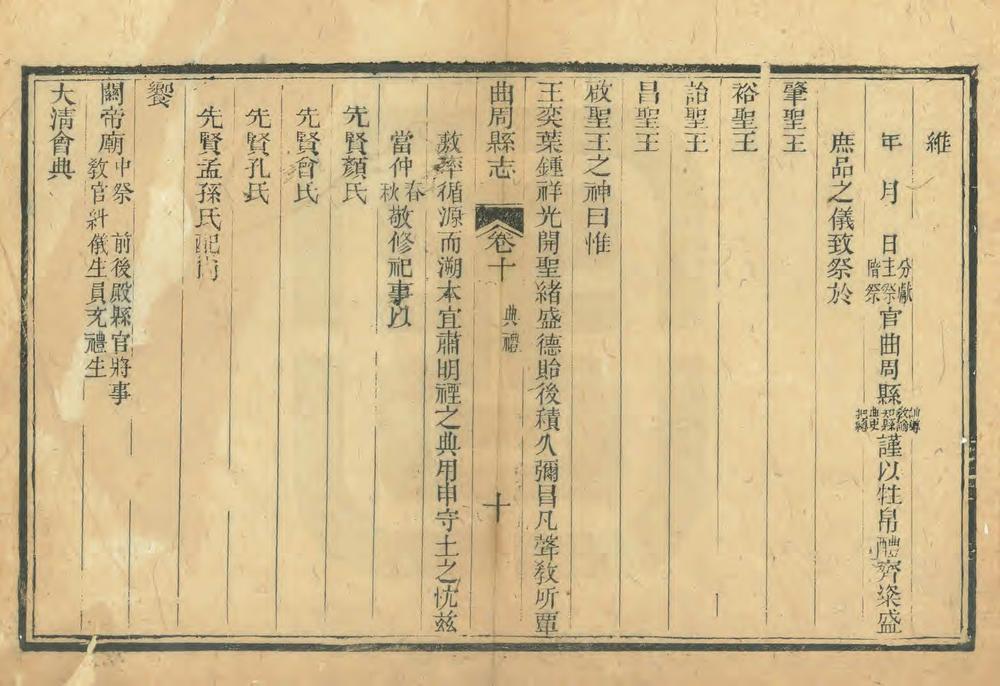 維
年 月 日主祭分獻陪祭官曲周縣知縣教諭訓導典史把總謹以牲帛醴齊粢盛
庶品之儀致祭於
肇聖王
裕聖王
詒聖王
昌聖王
啟聖王之神曰惟
王奕葉鍾祥光開聖緒盛德貽後積久彌昌凡聲敎所覃
曲周縣志 卷十 典禮 十
敷率循源而溯本宜肅明禋之典用申守土之忱茲
當仲春秋敬修祀事以
先賢顏氏
先賢曾氏
先賢孔氏
先賢孟孫氏配尚
饗
關帝廟中祭 前後殿縣官將事
教官糾儀生員充禮生
大淸會典